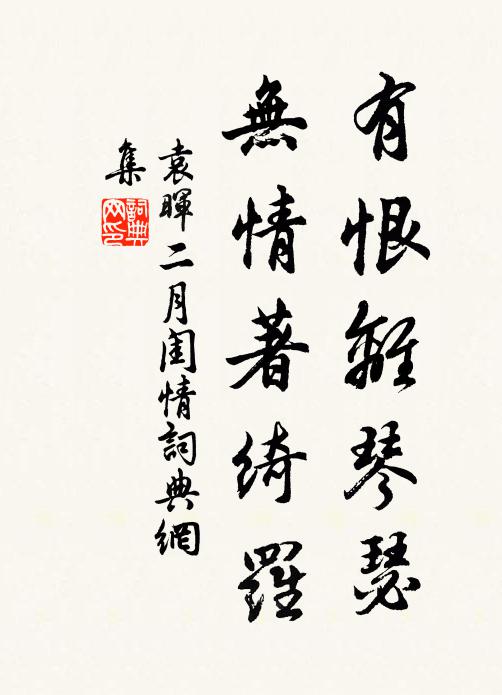 有恨離琴瑟
無情著綺羅
袁暉二月閨情詞典網
集
詞典
网印